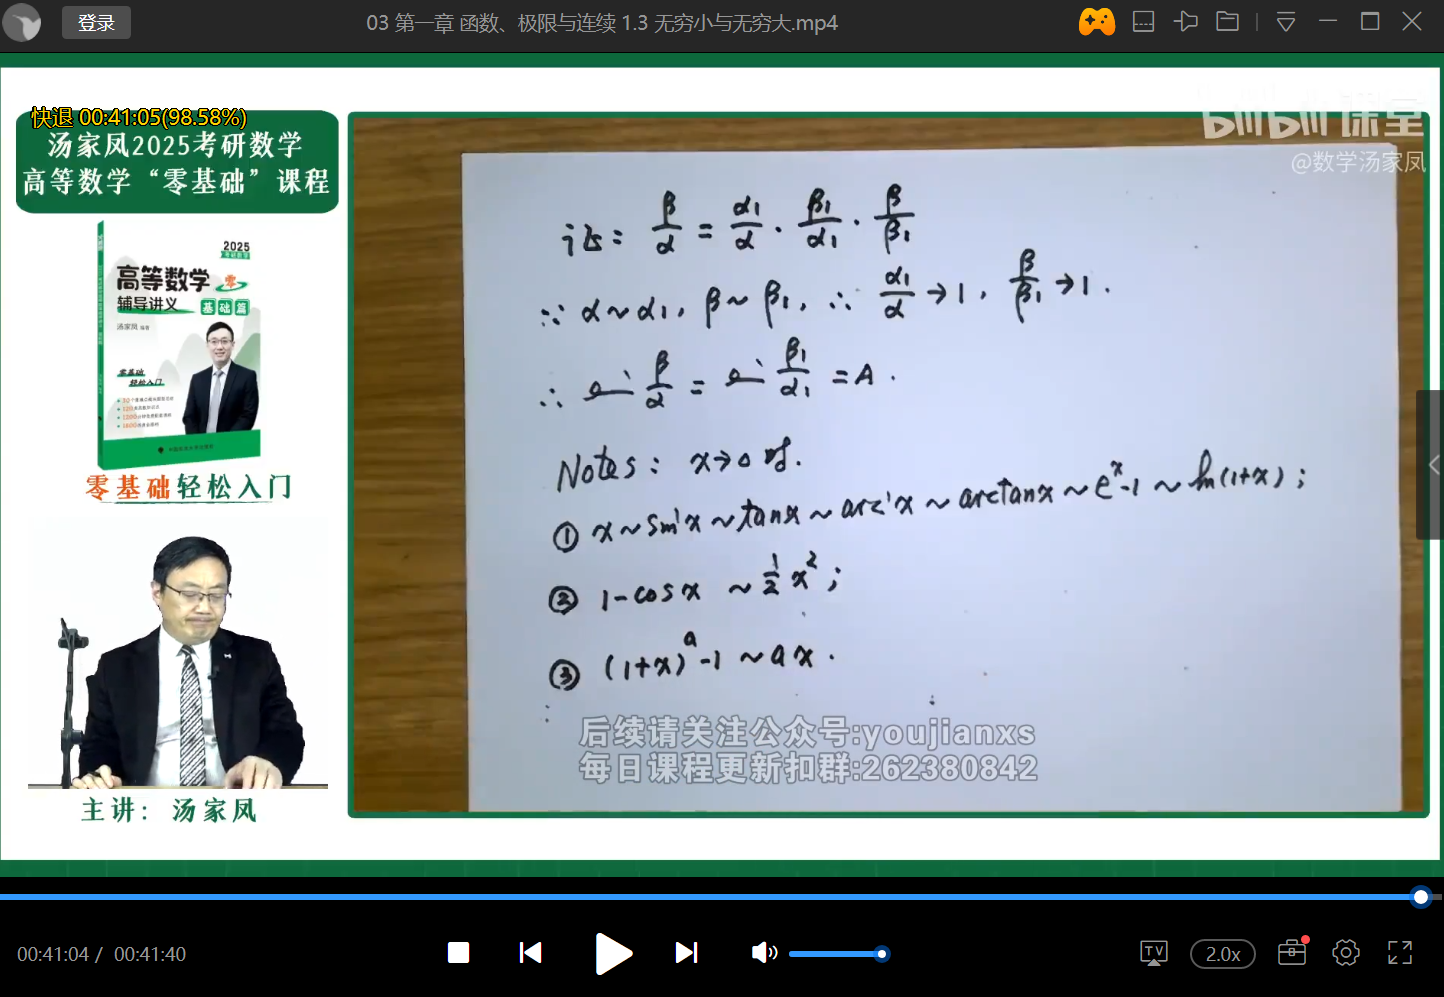 登录
03 第一章 函数、极限与连续 1.3 无穷小与无穷大.mp4
快退 00:41:05(98.58%)
汤家凤2025考研数学
高等数学“零基础”课程
2025
考研数学
高等数学 零
辅导讲义 基础篇
汤家凤 编著
零基础
轻松入门
零基础轻松入门
主讲：汤家凤
bilibili 课堂
@数学汤家凤
证: β/α = α₁/α · β₁/α₁ · β/β₁
∵ α~α₁, β~β₁, ∴ α₁/α → 1, β/β₁ → 1.
∴ lim β/α = lim β₁/α₁ = A.
Notes: x→0 时.
① x~sin x~tan x~arcsin x~arctan x~eˣ-1~ln(1+x);
② 1-cos x ~ 1/2 x²;
③ (1+x)ᵃ-1 ~ ax.
后续请关注公众号:youjianxs
每日课程更新扣群:262380842
00:41:04 / 00:41:40
TV
2.0x